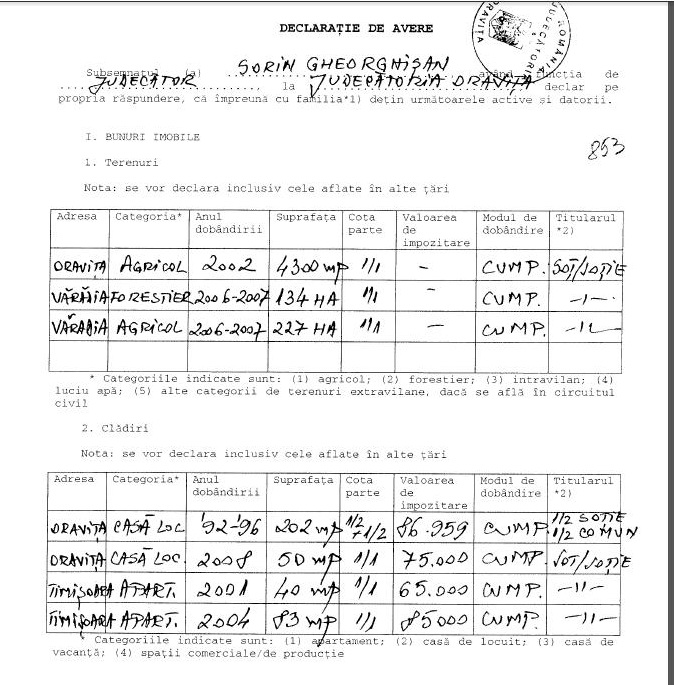 DECLARAȚIE DE AVERE
ROMÂNIA
JUDECĂTORIA
ORAVIȚA
Subsemnatul (a) SORIN GHEORGHIȘAN având funcția de
JUDECĂTOR, la JUDECĂTORIA ORAVIȚA declar pe
propria răspundere, că împreună cu familia*1) dețin următoarele active și datorii.
I. BUNURI IMOBILE
853
1. Terenuri
Nota: se vor declara inclusiv cele aflate în alte țări
Adresa Categoria* Anul dobândirii Suprafața Cota parte Valoarea de impozitare Modul de dobândire Titularul *2)
ORAVIȚA AGRICOL 2002 4300 mp 1/1 – CUMP. SOȚ/SOȚIE
VĂRĂDIA FORESTIER 2006-2007 134 HA 1/1 – CUMP. –II–
VĂRĂDIA AGRICOL 2006-2007 227 HA 1/1 – CUMP. –II–
* Categoriile indicate sunt: (1) agricol; (2) forestier; (3) intravilan; (4)
luciu apă; (5) alte categorii de terenuri extravilane, dacă se află în circuitul
civil
2. Clădiri
Nota: se vor declara inclusiv cele aflate în alte țări
Adresa Categoria* Anul dobândirii Suprafața Cota parte Valoarea de impozitare Modul de dobândire Titularul *2)
ORAVIȚA CASĂ LOC '92-'96 202 mp 1/2 +1/2 86.959 CUMP. 1/2 SOȚIE 1/2 COMUN
ORAVIȚA CASĂ LOC. 2008 50 mp 1/1 75.000 CUMP. SOȚ/SOȚIE
TIMIȘOARA APART. 2001 40 mp 1/1 65.000 CUMP. –II–
TIMIȘOARA APART. 2004 83 mp 1/1 85000 CUMP. –II–
Categoriile indicate sunt: (1) apartament; (2) casă de locuit; (3) casă de
vacanță; (4) spații comerciale/de producție